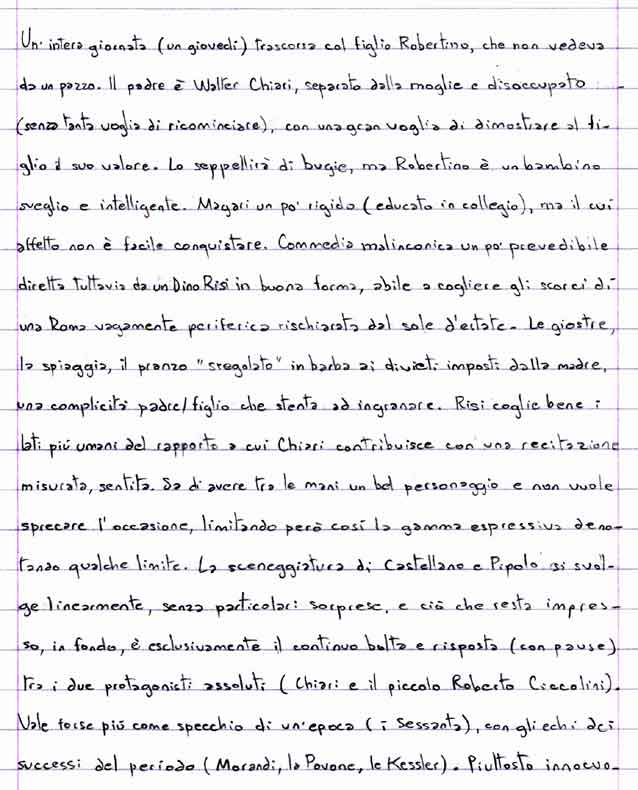 Un' intera giornata (un giovedì) trascorsa col figlio Robertino, che non vedeva
da un pezzo. Il padre è Walter Chiari, separato dalla moglie e disoccupato
(senza tanta voglia di ricominciare), con una gran voglia di dimostrare al fi-
glio il suo valore. Lo seppellirà di bugie, ma Robertino è un bambino
sveglio e intelligente. Magari un po' rigido (educato in collegio), ma il cui
affetto non è facile conquistare. Commedia malinconica un po' prevedibile
diretta tuttavia da un Dino Risi in buona forma, abile a cogliere gli scorci di
una Roma vagamente periferica rischiarata dal sole d'estate. Le giostre,
la spiaggia, il pranzo "sregolato" in barba ai divieti imposti dalla madre,
una complicità padre/figlio che stenta ad ingranare. Risi coglie bene i
lati più umani del rapporto a cui Chiari contribuisce con una recitazione
misurata, sentita. Sa di avere tra le mani un bel personaggio e non vuole
sprecare l'occasione, limitando però così la gamma espressiva deno-
tando qualche limite. La sceneggiatura di Castellano e Pipolo si svol-
ge linearmente, senza particolari sorprese, e ciò che resta impres-
so, in fondo, è esclusivamente il continuo botta e risposta (con pause)
tra i due protagonisti assoluti (Chiari e il piccolo Roberto Ciccolini).
Vale forse più come specchio di un'epoca (i Sessanta), con gli echi dei
successi del periodo (Morandi, la Pavone, le Kessler). Piuttosto innocuo.